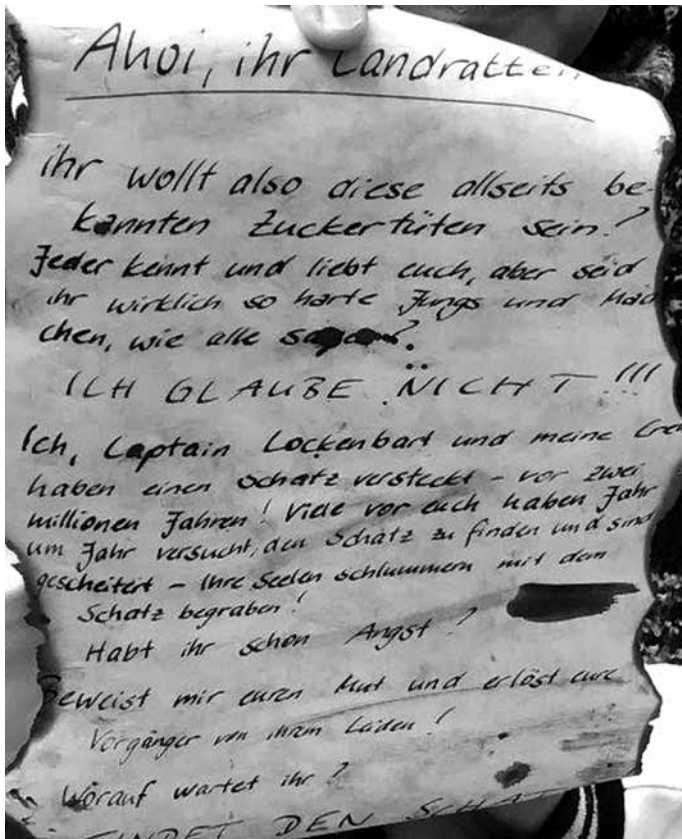 Ahoi, ihr Landratten
ihr wollt also diese allseits be-
kannten Zuckertüten sein?
Jeder kennt und liebt euch, aber seid
ihr wirklich so harte Jungs und Mäd
chen, wie alle sagen?
ICH GLAUBE NICHT!!!
Ich, Captain Lockenbart und meine Crew
haben einen Schatz versteckt - vor zwei
millionen Jahren! Viele vor euch haben Jahr
um Jahr versucht, den Schatz zu finden und sind
gescheitert - Ihre Seelen schlummern mit dem
Schatz begraben!
Habt ihr schon Angst?
Beweist mir euren Mut und erlöst eure
Vorgänger von ihrem Leiden!
Worauf wartet ihr?
FINDET DEN SCHAT